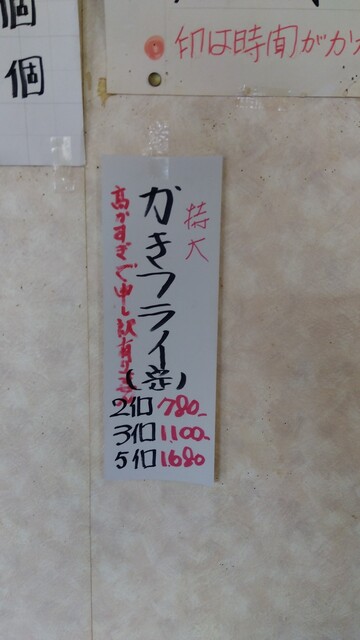 個
個
印は時間がかか
特大
かきフライ(定)
高かすぎで申し訳有りません
2個 780-
3個 1.100-
5個 1.680